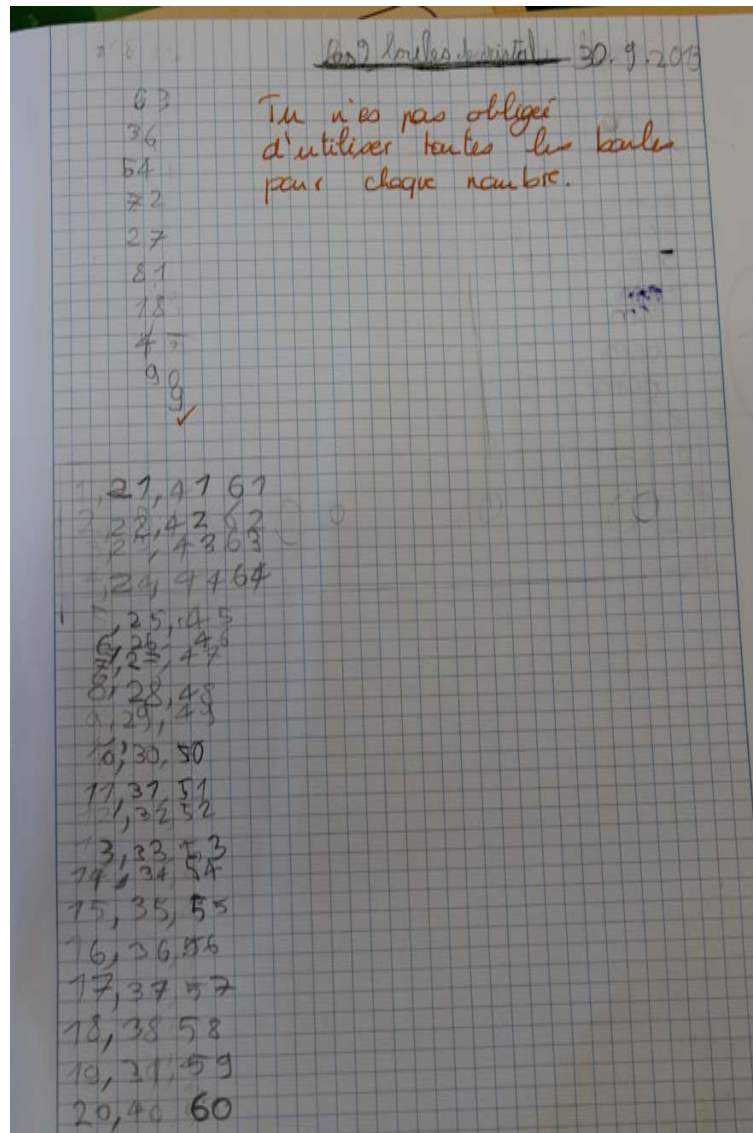 30.9.2013
63
Tu n'es pas obligée
36
d'utiliser toutes les boules
54
pour chaque nombre.
72
27
81
18
4
90
9
1, 21, 41 61
2, 22, 42 62
23, 43 63
24, 44 64
25, 45
6, 26, 46
7, 27, 47
8, 28, 48
9, 29, 49
10, 30, 50
11, 31, 51
12, 32 52
13, 33, 53
14, 34 54
15, 35, 55
16, 36 56
17, 37 57
18, 38 58
19, 39 59
20, 40 60